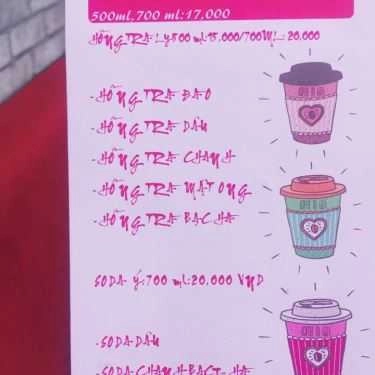 500ml,700 ml:17,000
HỒNG TRÀ: Ly500 ml:15,000/700ML: 20,000
-HỒNG TRÀ ĐÀO
-HỒNG TRÀ DÂU
-HỒNG TRÀ CHANH
-HỒNG TRÀ MẬT ONG
-HỒNG TRÀ BẠC HÀ
SODA Ý:700 ml:20,000 VNĐ
-SODA DÂU
-SODA CHANH BẠC HÀ